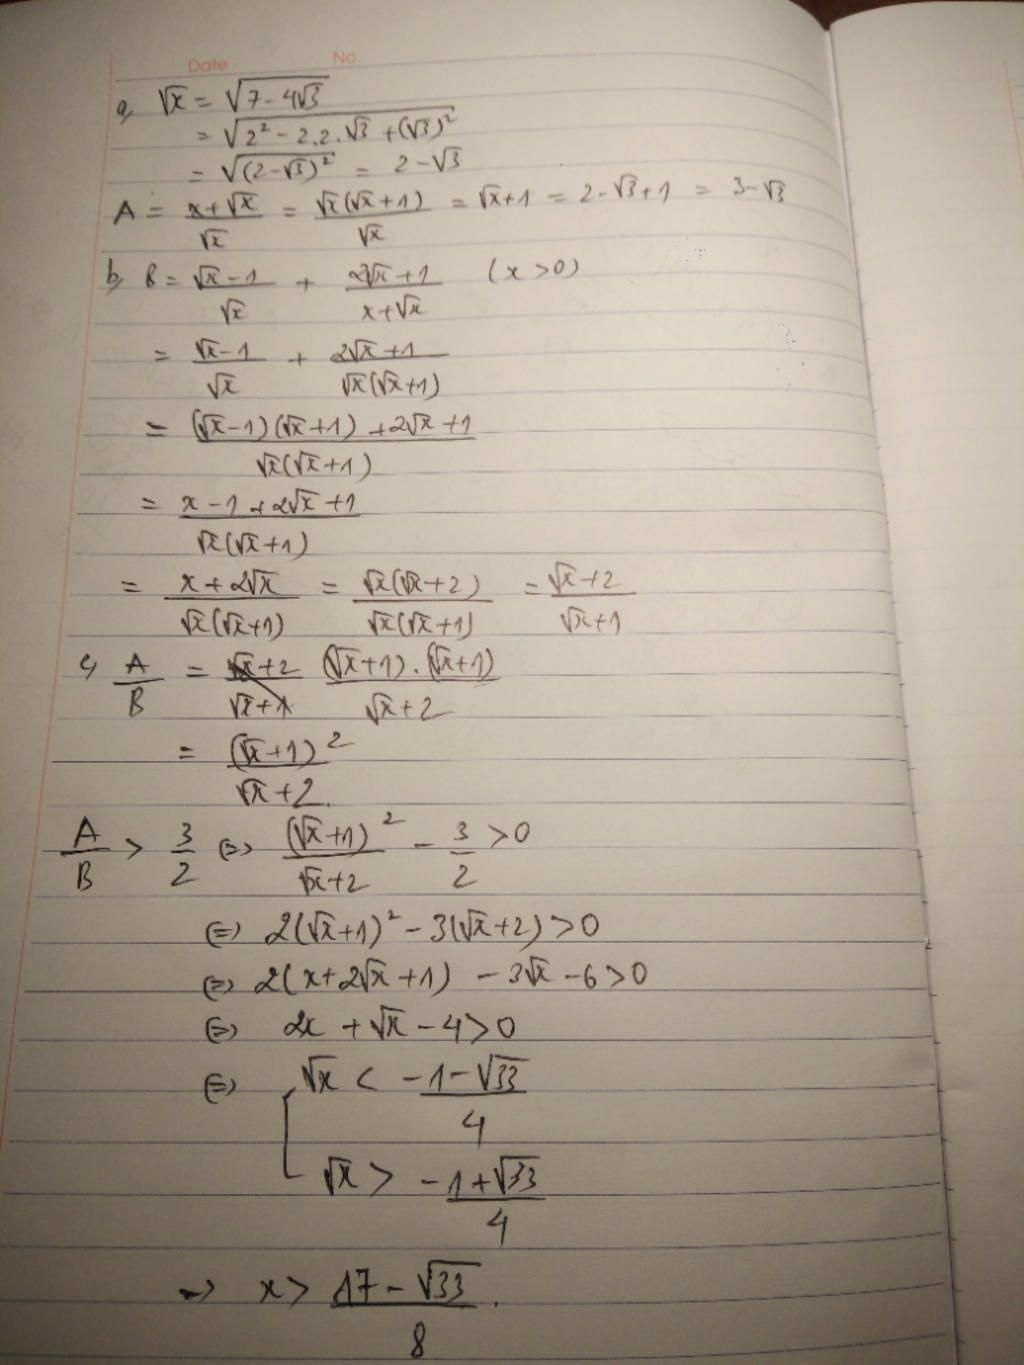 Date No
a, √x = √(7 - 4√3)
= √(2² - 2.2.√3 + (√3)²)
= √((2-√3)²) = 2-√3
A = (x+√x)/√x = √x(√x+1)/√x = √x+1 = 2-√3+1 = 3-√3
b, B = (√x-1)/√x + (2√x+1)/(x+√x) (x>0)
= (√x-1)/√x + (2√x+1)/(√x(√x+1))
= ((√x-1)(√x+1)+2√x+1)/(√x(√x+1))
= (x-1+2√x+1)/(√x(√x+1))
= (x+2√x)/(√x(√x+1)) = √x(√x+2)/(√x(√x+1)) = (√x+2)/(√x+1)
c, A/B = (√x+2)/(√x+1) (√x+1).(√x+1)/(√x+2)
= (√x+1)²/(√x+2).
A/B > 3/2 ⇔ (√x+1)²/(√x+2) - 3/2 >0
⇔ 2(√x+1)² - 3(√x+2) >0
⇔ 2(x+2√x+1) - 3√x - 6 >0
⇔ 2x + √x - 4 >0
⇔ [ √x < (-1-√33)/4
√x > (-1+√33)/4
→ x > (17-√33)/8.